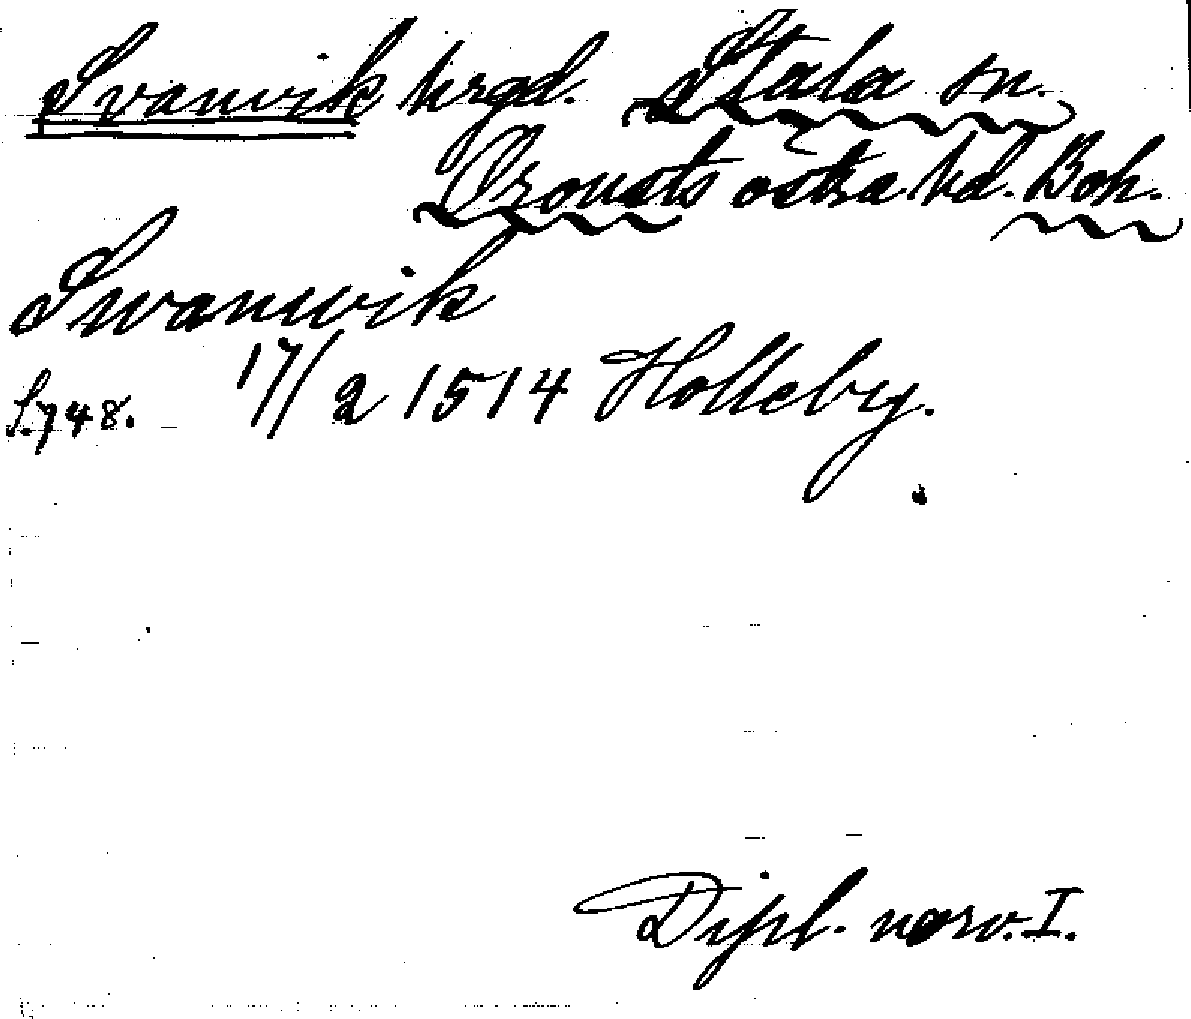 Svanvik hrgd. Stala sn.
Orousts östra hd. Boh.
Swanwik
S. 748. 17/2 1514 Holleby.
Dipl. norv. I.